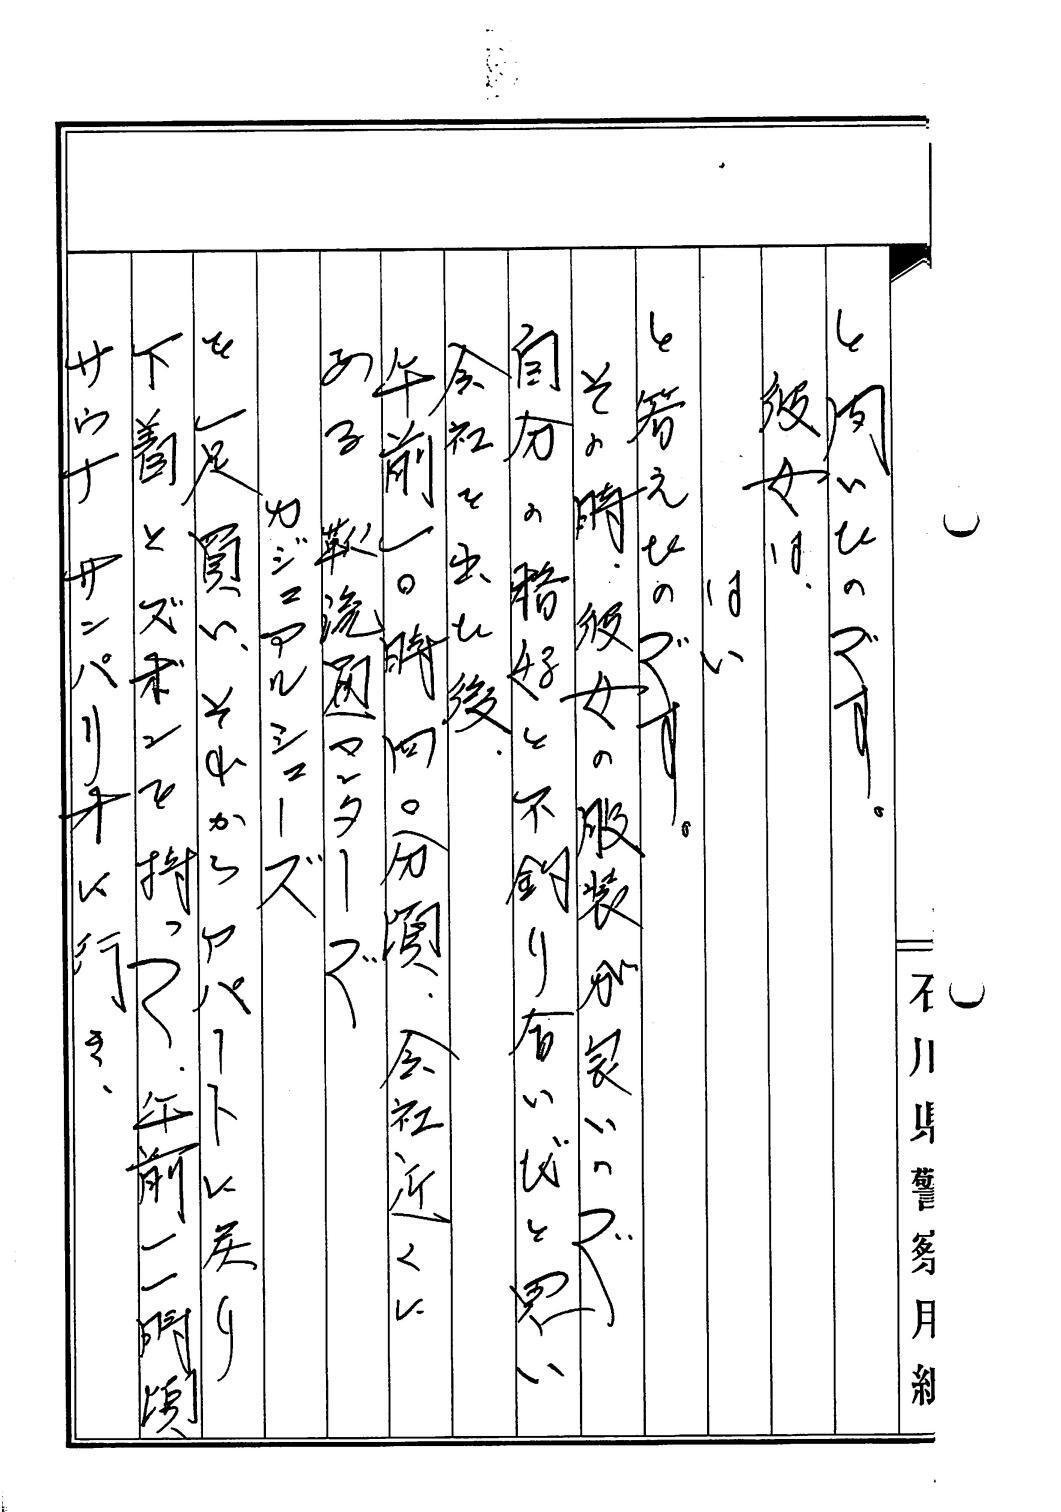 と聞いたのです。
彼女は、
はい
と答えたのです。
その時、彼女の服装が良いので
自分の格好と不釣り合いだと思い
会社を出た後、
午前一〇時四〇分頃、会社近くに
ある靴流通センターで
カジュアルシューズ
を一足買い、それからアパートに戻り
下着とズボンを持って、午前一一時頃
サウナサンパリオに行き、
石川県警察用紙